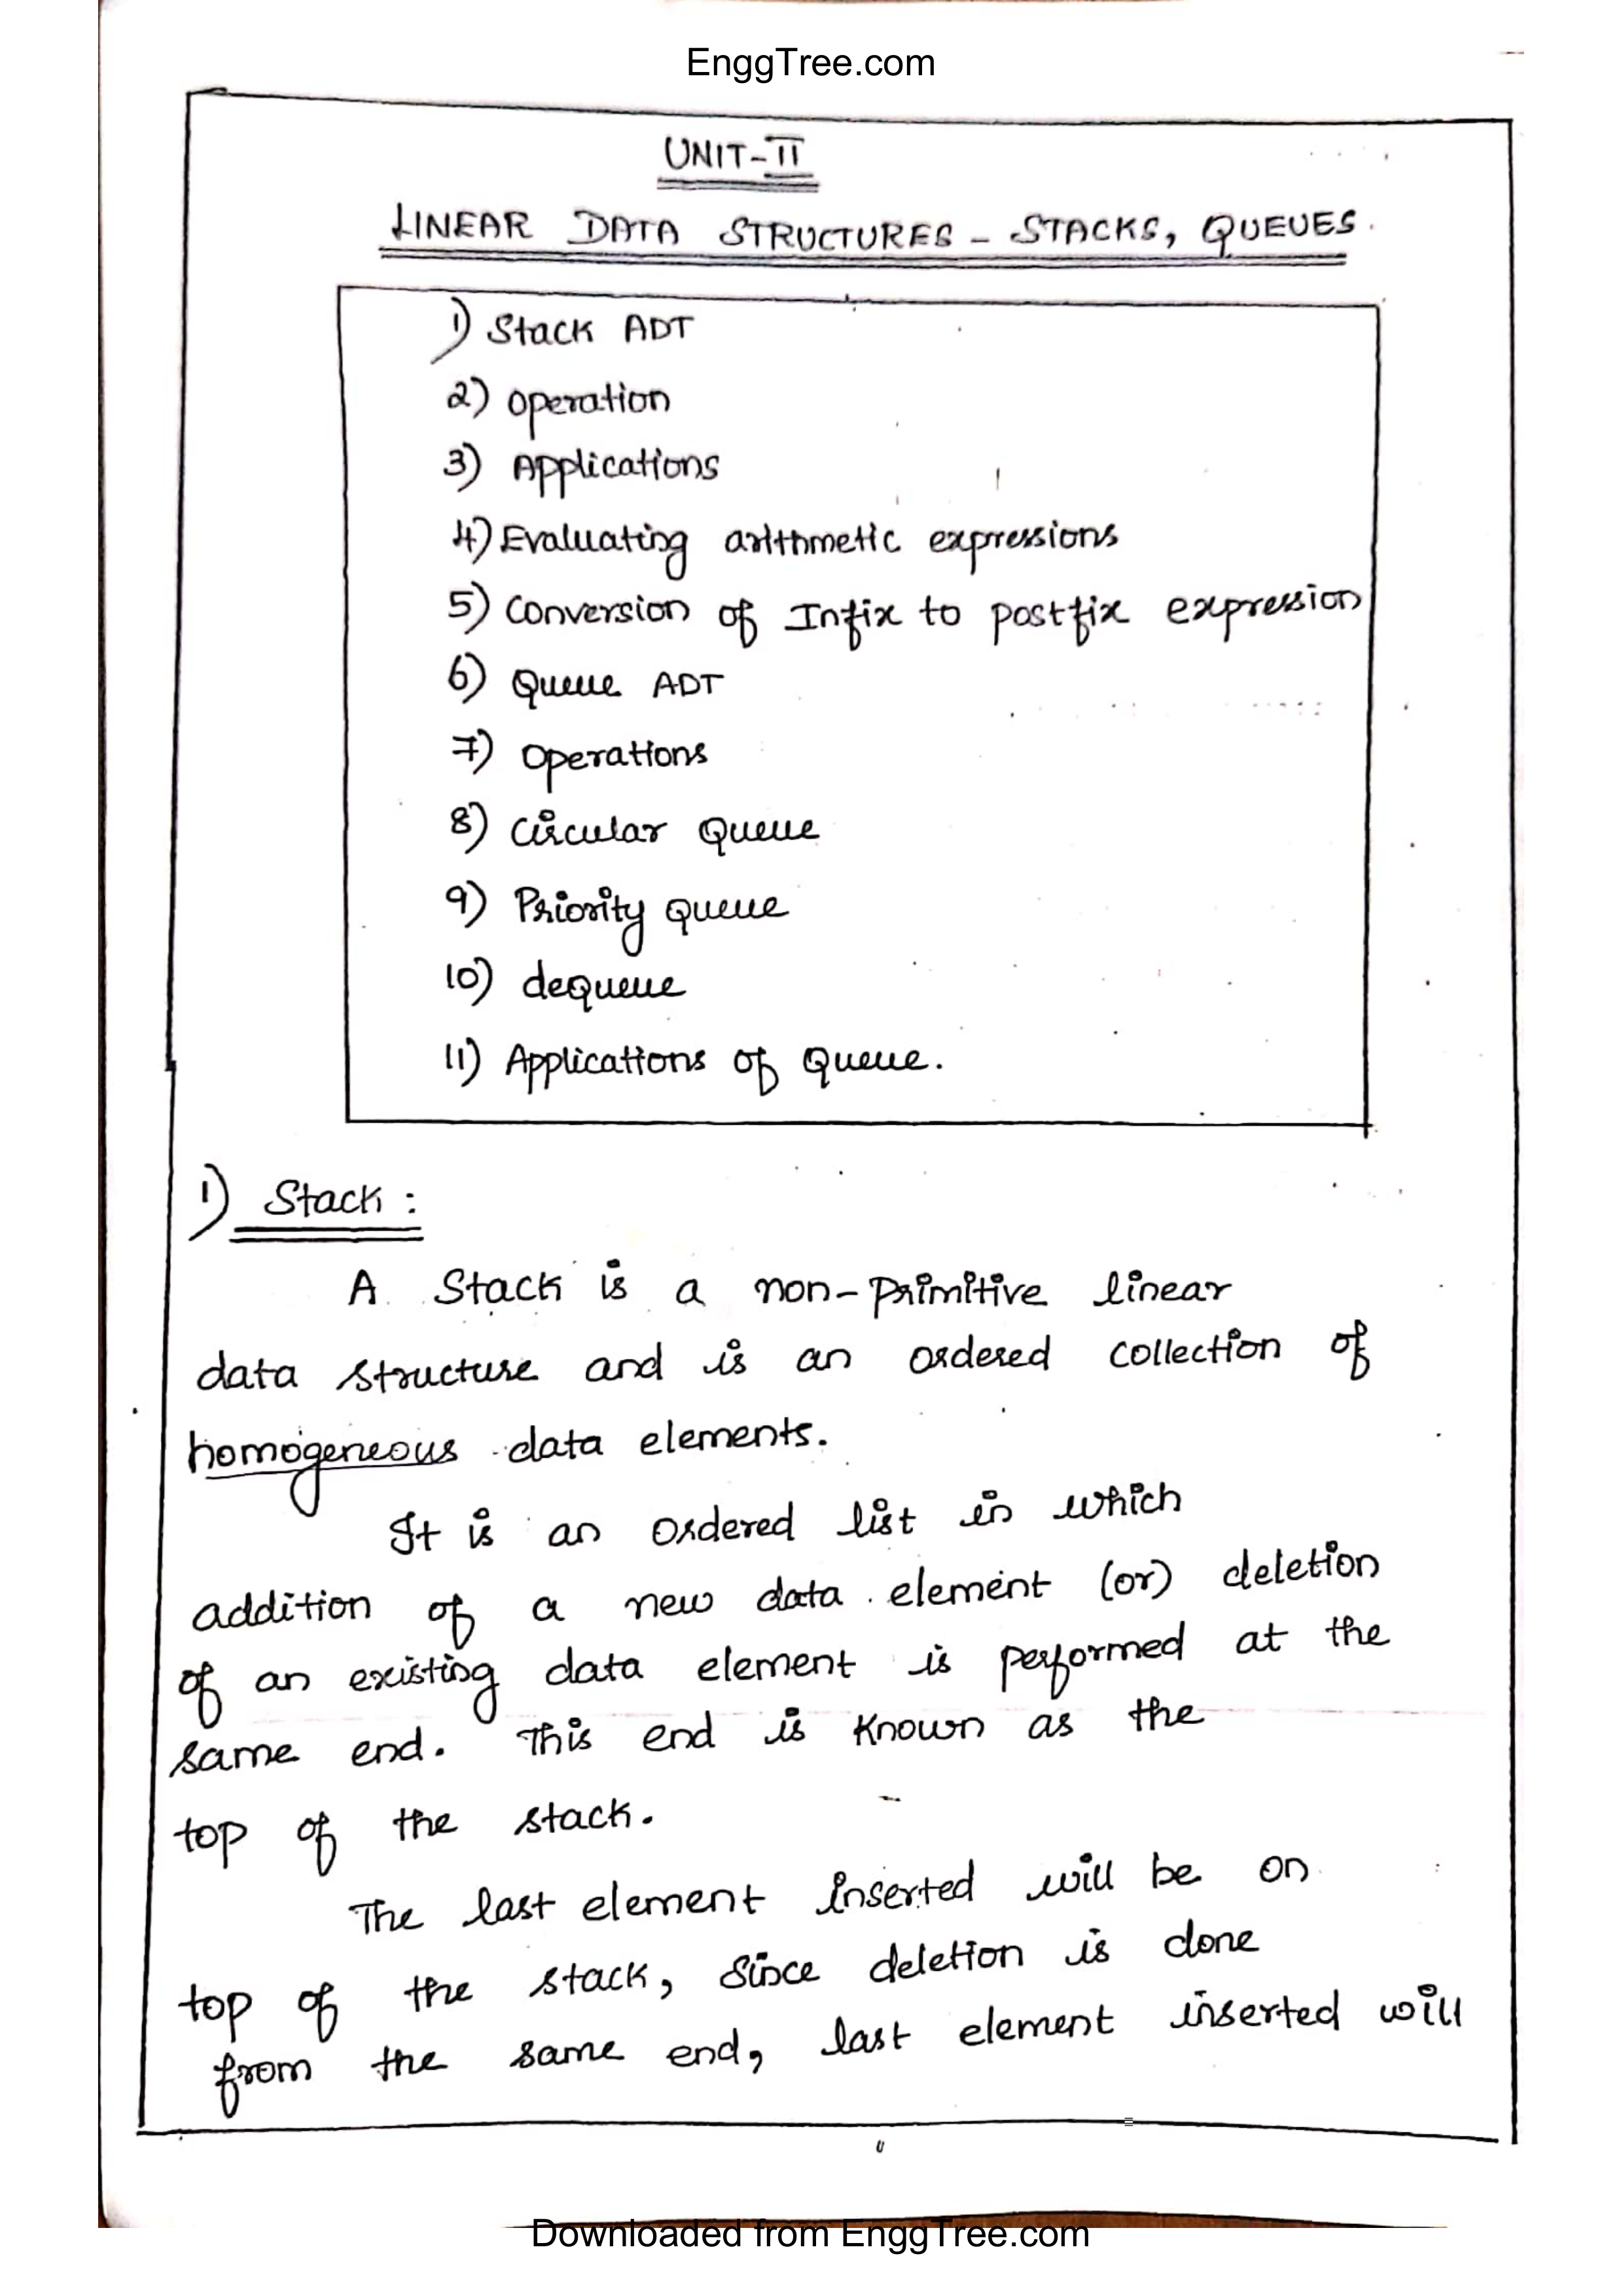 EnggTree.com
UNIT-II
LINEAR DATA STRUCTURES - STACKS, QUEUES.
1) Stack ADT
2) Operation
3) Applications
4) Evaluating arithmetic expressions
5) Conversion of Infix to postfix expression
6) Queue ADT
7) Operations
8) Circular Queue
9) Priority Queue
10) dequeue
11) Applications of Queue.
1) Stack :
A Stack is a non-Primitive linear
data structure and is an ordered collection of
homogeneous data elements.
It is an ordered list in which
addition of a new data element (or) deletion
of an existing data element is performed at the
same end. This end is known as the
top of the stack.
The last element inserted will be on
top of the stack, since deletion is done
from the same end, last element inserted will
Downloaded from EnggTree.com